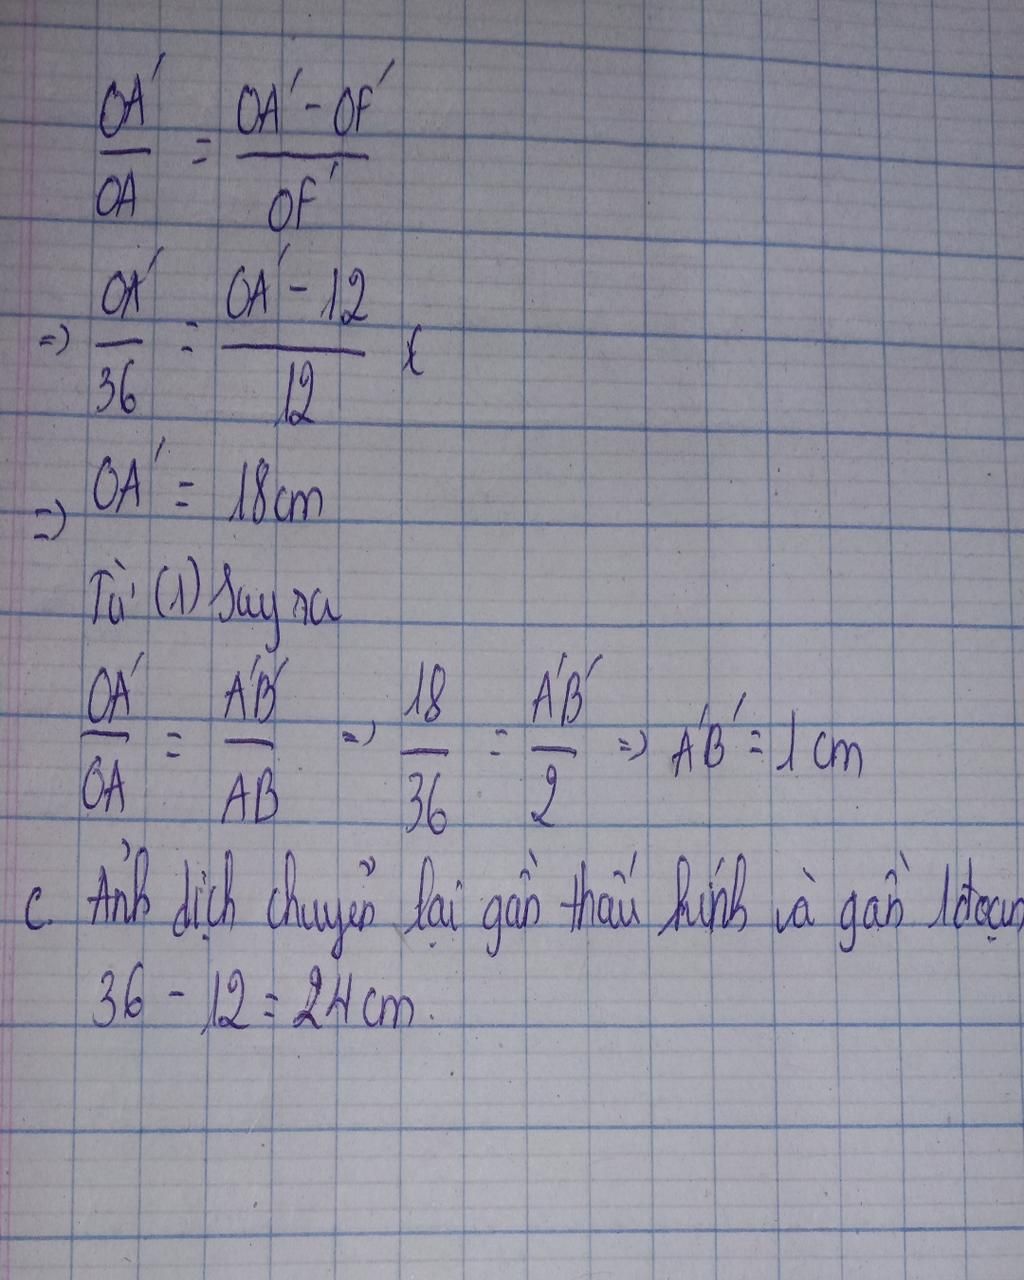 OA' / OA = OA' - OF' / OF'
=> OA' / 36 = OA' - 12 / 12
=> OA' = 18cm
Từ (1) Suy ra
OA' / OA = A'B' / AB => 18 / 36 = A'B' / 2 => A'B' = 1 cm
c. Ảnh dịch chuyển lại gần thấu kính và gần 1 đoạn
36 - 12 = 24 cm.